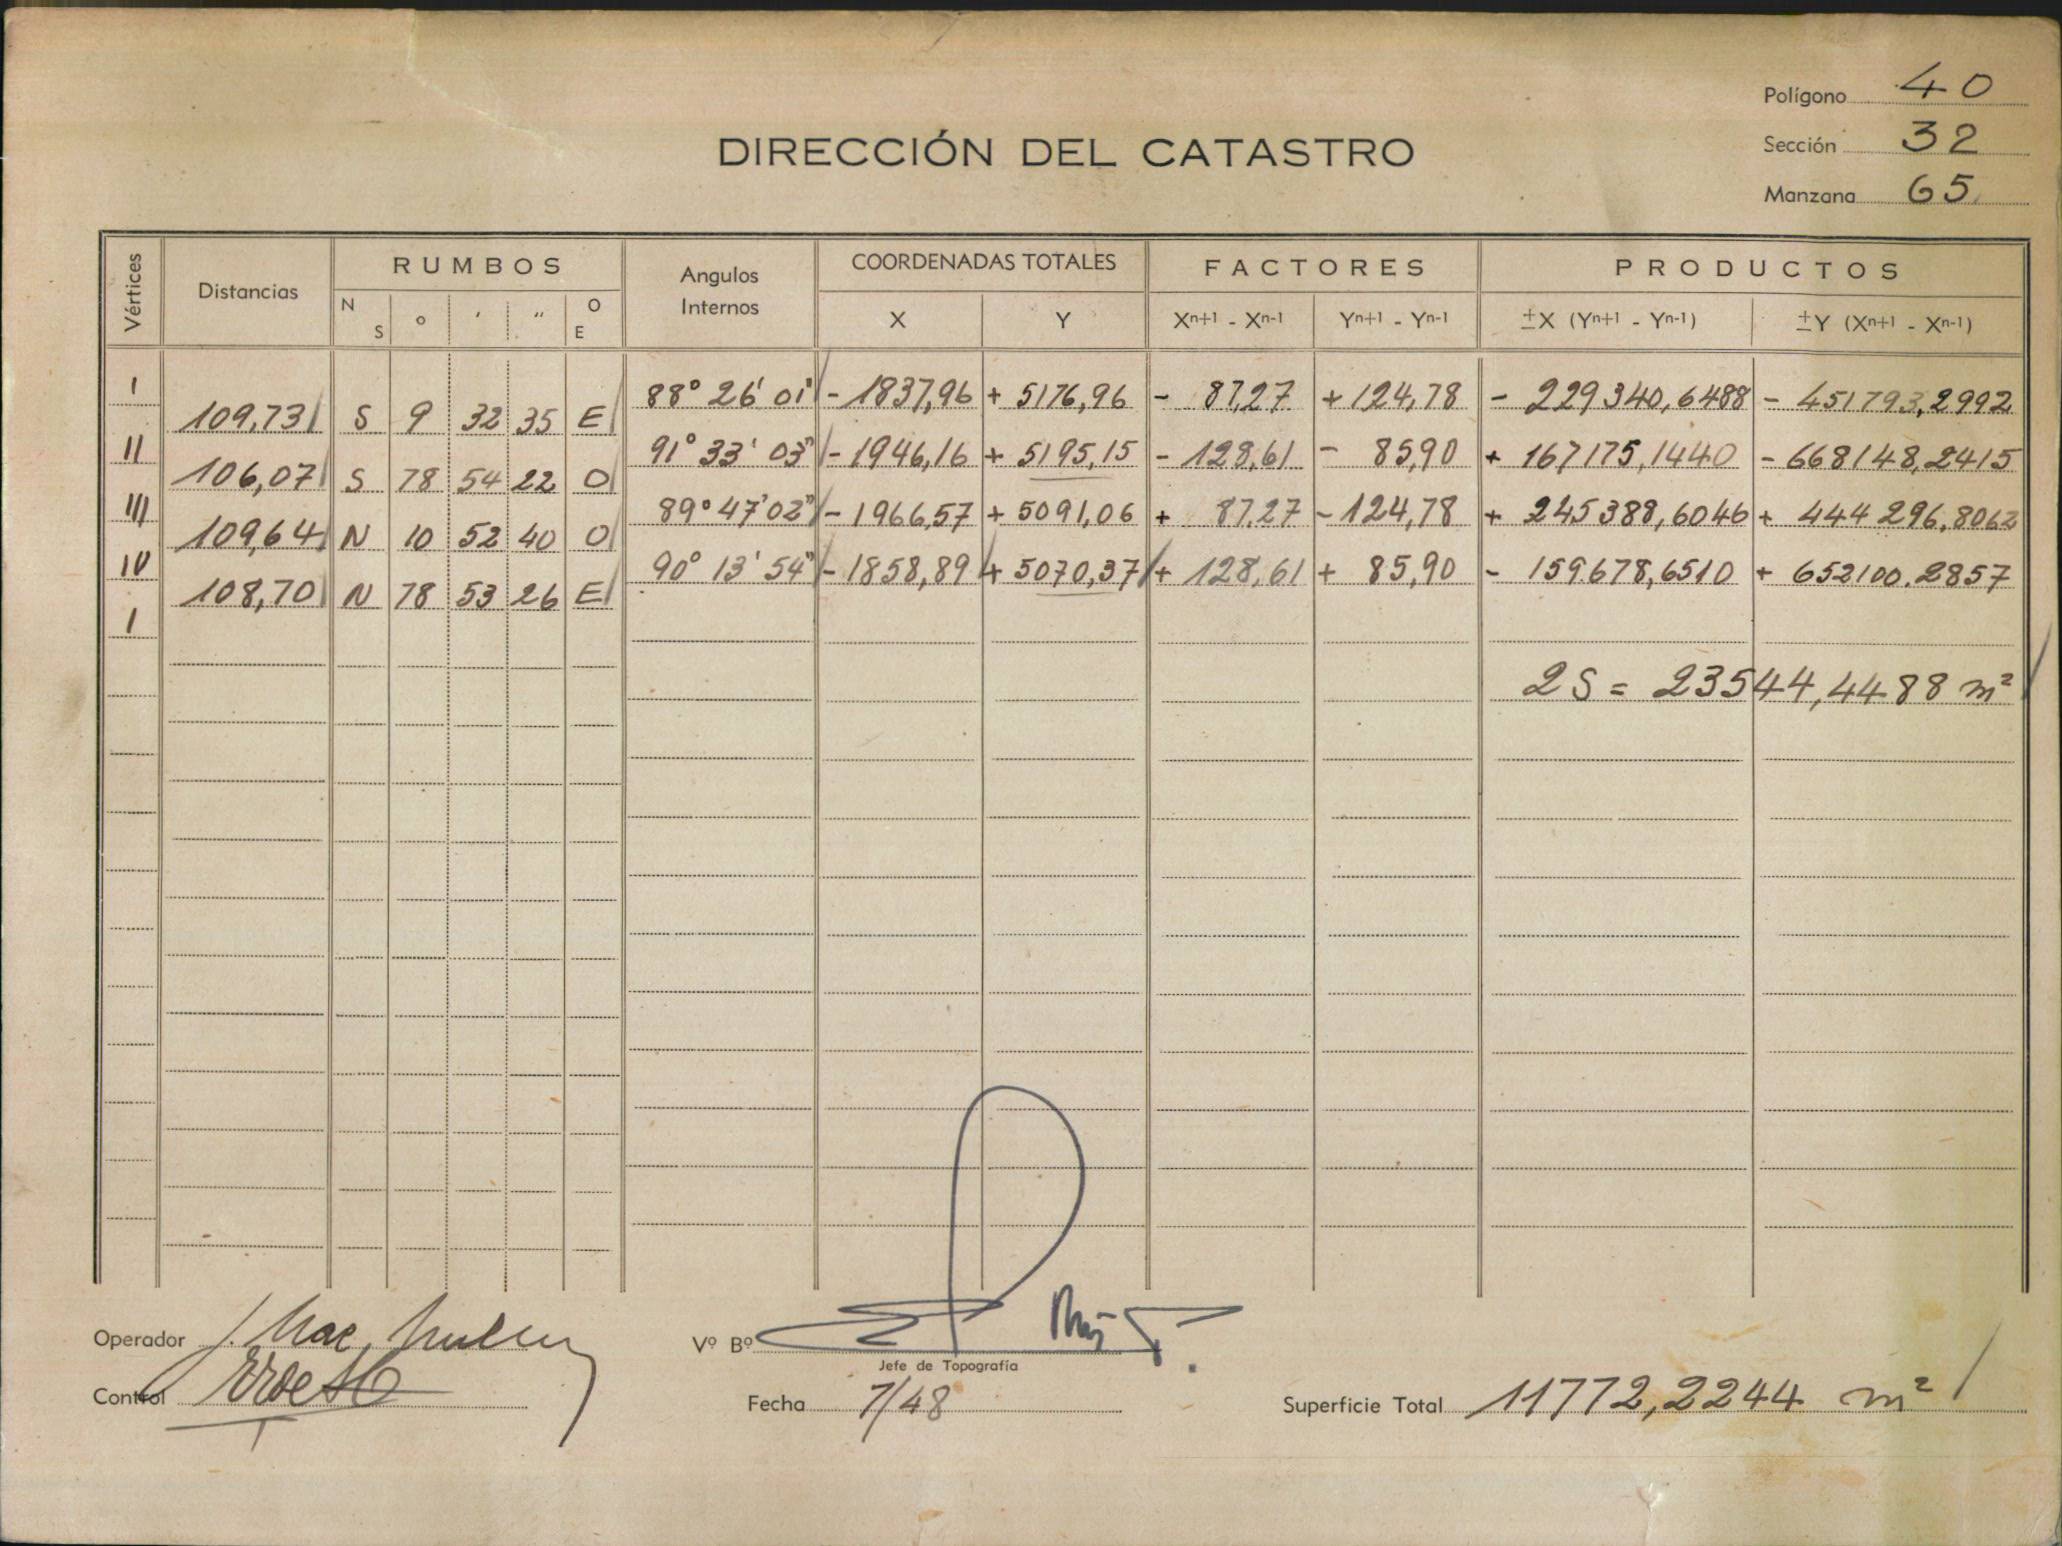 Polígono 40
Sección 32
Manzana 65
DIRECCIÓN DEL CATASTRO
Vértices Distancias RUMBOS Angulos Internos COORDENADAS TOTALES FACTORES PRODUCTOS
N S º ′ ″ O E X Y Xⁿ⁺¹ - Xⁿ⁻¹ Yⁿ⁺¹ - Yⁿ⁻¹ ±X (Yⁿ⁺¹ - Yⁿ⁻¹) ±Y (Xⁿ⁺¹ - Xⁿ⁻¹)
I 88° 26' 01" - 1837,96 + 5176,96 - 87,27 + 124,78 - 229340,6488 - 451793,2992
109,73 S 9 32 35 E
II 91° 33' 03" - 1946,16 + 5195,15 - 128,61 - 85,90 + 167175,1440 - 668148,2415
106,07 S 78 54 22 O
III 89° 47' 02" - 1966,57 + 5091,06 + 87,27 - 124,78 + 245388,6046 + 444296,8062
109,64 N 10 52 40 O
IV 90° 13' 54" - 1858,89 + 5070,37 + 128,61 + 85,90 - 159678,6510 + 652100.2857
108,70 N 78 53 26 E
I
2S = 23544,4488 m²
Operador
Vº Bº
Jefe de Topografía
Control
Fecha 7/48
Superficie Total 11772,2244 m²